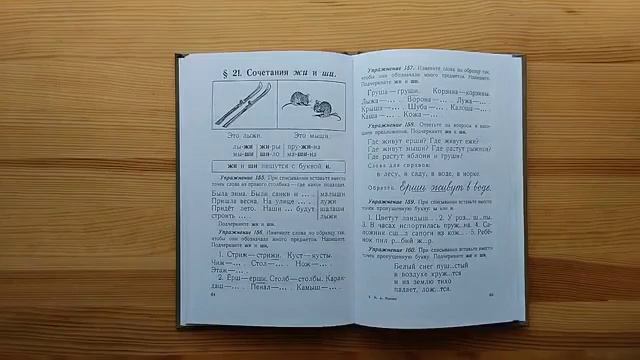 § 21. Сочетания жи и ши.
Это лыжи.
Это мыши.
лы-жи жи-ры пру-жи-на
мы-ши ши-ло ма-ши-на
жи и ши пишутся с буквой и.
Упражнение 155. При списывании вставьте вместо
точек слова из правого столбика — где какое подходит.
Была зима. Были санки и ... .
Пришла весна. На улице ... .
Придёт лето. Наши ... будут
строить ... .
малыши
лужи
шалаши
лыжи
Подчеркните жи и ши.
Упражнение 156. Измените слова по образцу так,
чтобы они обозначали много предметов. Напишите.
Подчеркните жи и ши.
1. Стриж — стрижи. Куст — кусты.
Чиж — ... . Стол — ... . Нож — ... .
Этаж — ... .
2. Ёрш — ерши. Столб — столбы. Каран-
даш — ... . Пенал — ... . Камыш — ... .
64
Упражнение 157. Измените слова по образцу так,
чтобы они обозначали много предметов. Напишите.
Подчеркните жи и ши.
Груша — груши. Корзина — корзины.
Лыжа — ... . Ворона — ... . Лужа — ... .
Крыша — ... . Шуба — ... . Калоша — ... .
Каша — ... . Кожа — ... .
Упражнение 158. Ответьте на вопросы и
предложения. Подчеркните жи и ши.
Где живут ерши? Где живут ежи?
Где живут мыши? Где растут
Где растут яблони и груши?
Слова для справок:
в лесу, в саду, в воде, в норке.
Образец. Ерши живут в воде.
Упражнение 159. При списывании вставьте вместо
точек пропущенную букву: ы или и.
1. Цветут ландыш... . 2. У роз... ш...пы.
3. В часах испортилась пруж...на. 4. Са-
пожник сш...л сапоги из кож... . 5. Ребё-
нок пил р...бий ж...р.
Упражнение 160. При списывании вставьте вместо
точек пропущенную букву. Подчеркните жи и ши.
Белый снег пуш...стый
в воздухе круж...тся
и на землю тихо
падает, лож...тся.
65